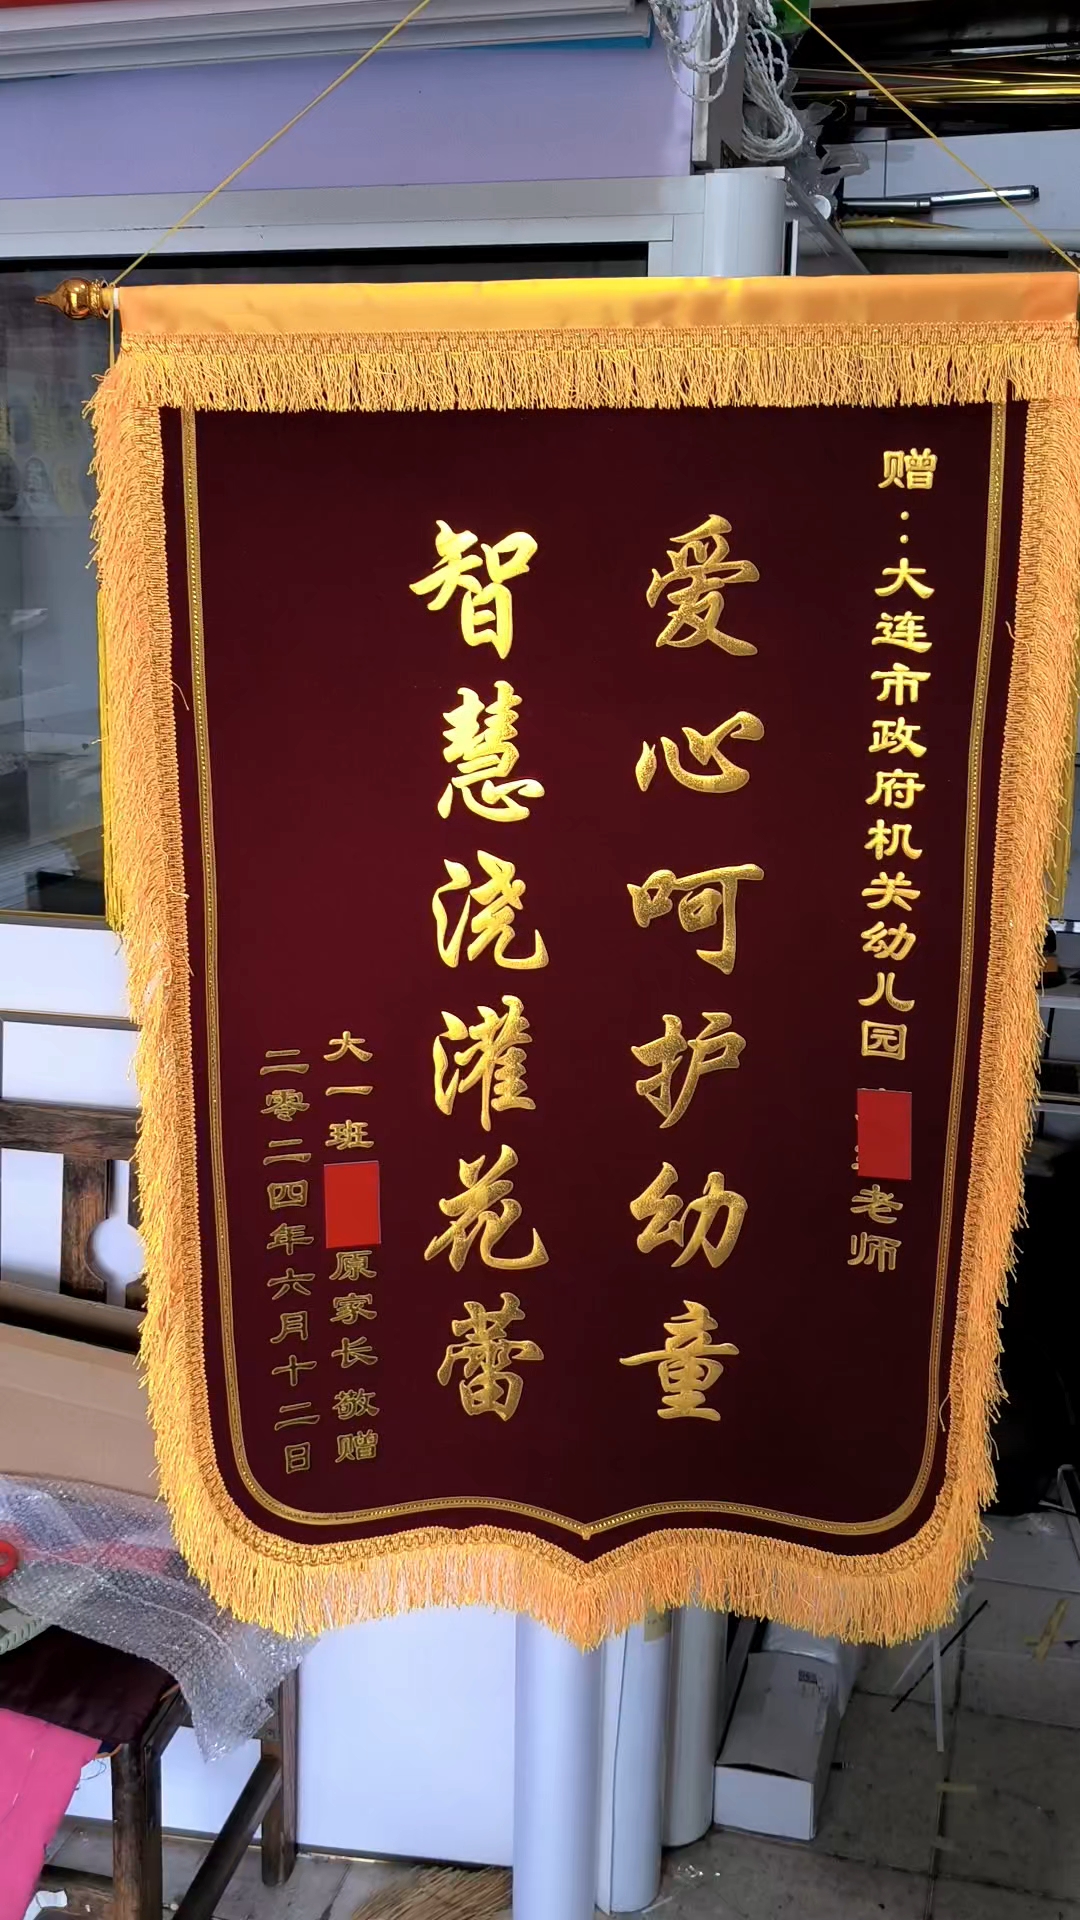 赠：大连市政府机关幼儿园
老师
爱心呵护幼童
智慧浇灌花蕾
大一班
原家长敬赠
二零二四年六月十二日